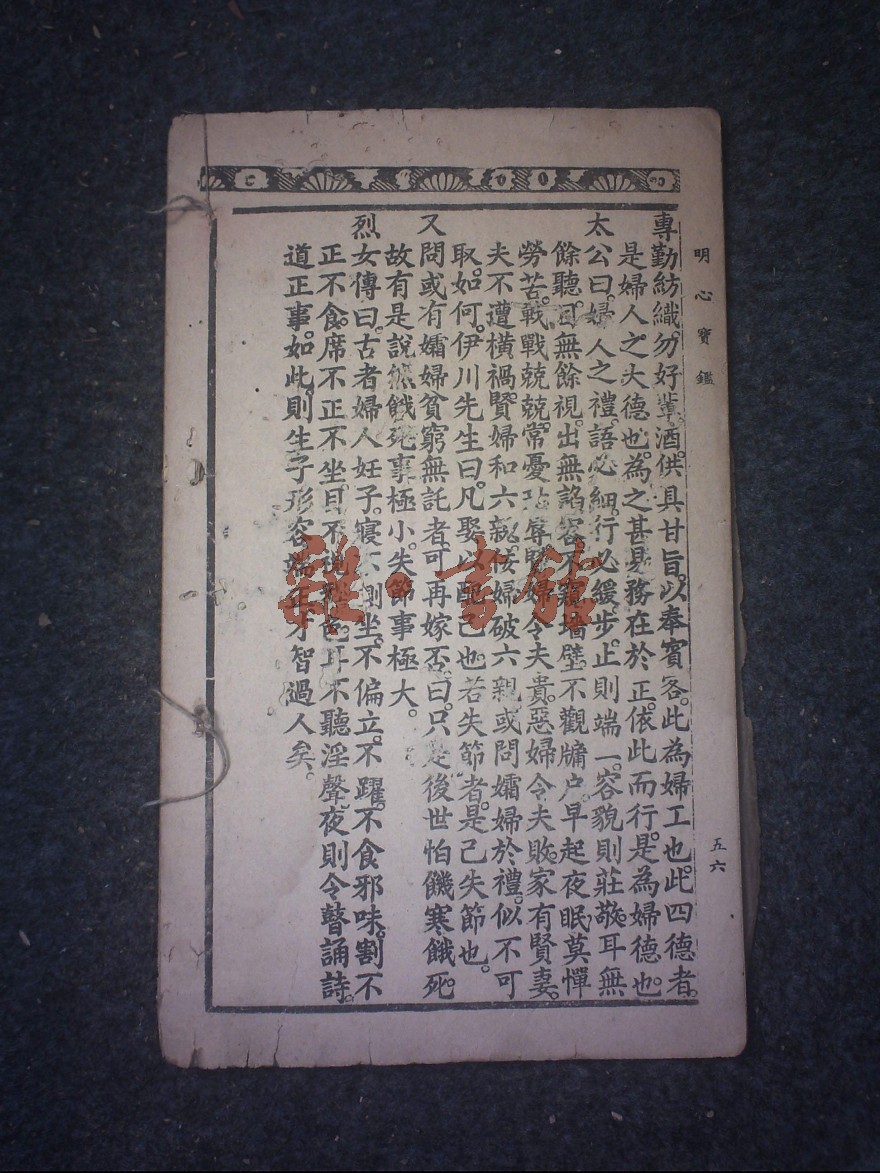 明心寶鑑
五六
專勤紡織。勿好葷酒。供具甘旨。以奉賓客。此為婦工也。此四德者。
是婦人之大德也。為之甚易。務在於正。依此而行。是為婦德也。
太公曰。婦人之禮。語必細。行必緩。步止則端一。容貌則莊敬。耳無
餘聽。目無餘視。出無諂容。不窺墻壁。不觀牖户。早起夜眠。莫憚
勞苦。戰戰兢兢。常憂玷辱。賢婦令夫貴。惡婦令夫敗。家有賢妻。
夫不遭橫禍。賢婦和六親。佞婦破六親。或問孀婦於禮。似不可
取。如何。伊川先生曰。凡娶以配己也。若失節者。是己失節也。
又問或有孀婦貧窮無託者。可再嫁否。曰。只是後世怕饑寒餓死。
故有是說。然餓死事極小。失節事極大。
烈女傳曰。古者婦人妊子。寢不側坐。不偏立。不躍。不食邪味。割不
正不食。席不正不坐。目不視色。耳不聽淫聲。夜則令瞽誦詩。
道正事。如此。則生子形容端正。才智過人矣。
雜·書館